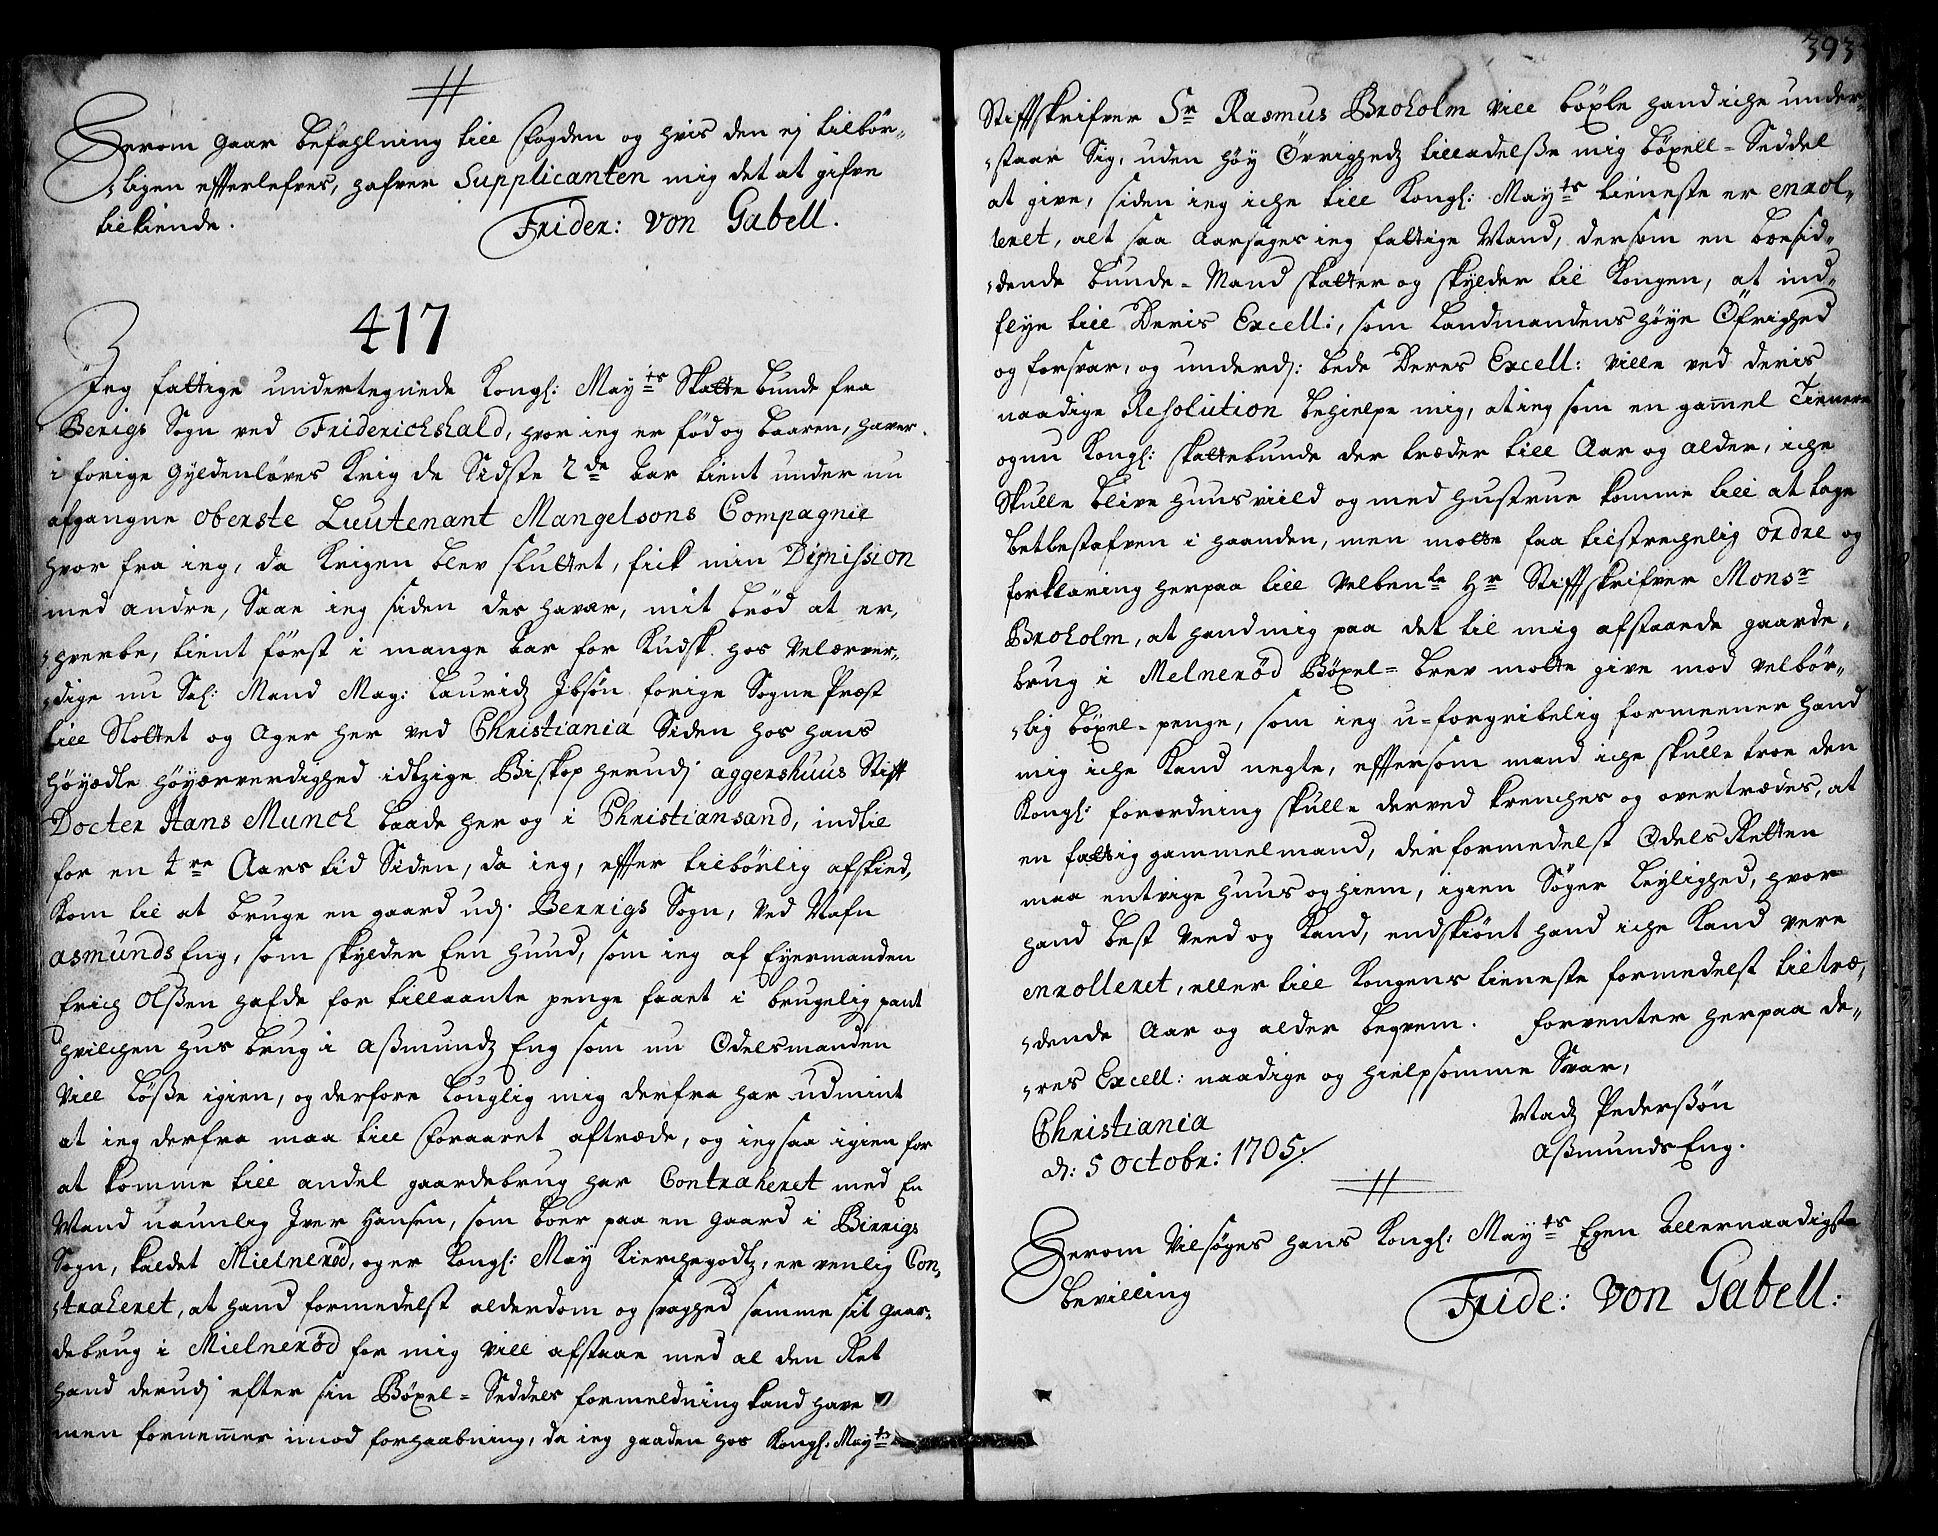 Herom gaar befahlning till Fogden og hvis den ej tilbør-
ligen efterlefves, hafver Supplicanten mig det at gifve
tilkiende.
Frider: von Gabell.
417
Jeg fattige undertegnede Kongl: Mayts Skatte bunde fra
Berigs Sogn ved Friderichshald, hvor ieg er fød og baaren, haver
i forige Gyldenløves Krig de Sidste 2de Aar tient under nu
afgangne Oberste Lieutenant Mangelsons Compagnie
hvor fra ieg, da Krigen blev sluttet, fick min Dimission
med andre, Saae ieg siden des havar, mit brød at er-
hverbe, tient først i mange Aar for Kudsk hos velærver-
dige nu Sal: Mand Mag: Lauridz Ibsøn forige Sogne Præst
till Slottet og Ager her ved Christiania Siden hos hans
høyædle høyærverdighed idtzige Biskop herudj aggershuus Stift
Docter Hans Munch baade her og i Christiansand, indtil
for en tre Aars tid Siden, da ieg, efter tilbørlig afskied,
kom til at bruge en gaard udj Berrigs Sogn, ved Nafn
asmunds Eng, som skylder Een huud, som ieg af Eyermanden
Erich Olsßen hafde for tillaante penge faaet i brugelig pant
hvilchen hus brug i Aßmundz Eng som nu Odelsmanden
vill løße igien, og derfore louglig mig derfra har udmint
at ieg derfra maa till Foraaret aftræde, og ieg saa igien for
at komme till andel gaardebrug har Contraheret med En
Mand naunlig Iver Hansen, som boer paa en Gaard i Birrigs
Sogn, kaldet Mielnerød, og er Kongl: May Kierchegodtz, er venlig Con-
traheret, at hand formedelst alderdom og svaghed samme sit gaar-
debrug i Mielnerød for mig vill afstaae med al den Ret
hand derudj efter sin Bøxel-Seddels formeldning kand have
men fornemmer imod forhaabning, da ieg gaaden hos Kongl: Mayts
393
Stiftskrifver Sr Rasmus Broholm vill bøxle hand iche under-
staar Sig, uden høy Øvrighedz tilladelße mig bøxell-Seddel
at give, siden ieg iche till Kongl: Mayts tieneste er enrol-
leret, alt saa aarsages ieg fattige Mand, der som en boesid-
dende bunde-Mand skatter og skylder til Kongen, at ind-
flye till Deris Excell:, som Landmandens høye Øfrighed
og forsvar, og underd: bede Deres Excell: ville ved deris
naadige Resolution behielpe mig, at ieg som en gammel Tienere
og nu Kongl: skattebunde der træder till Aar og alder, iche
skulle blive huusviild og med hustrue komme till at tage
betlestafven i haanden, men motte faa tilstrechelig ordre og
forklaring herpaa till Velbente Hr Stiftskrifver Monsr
Broholm, at hand mig paa det til mig afstaaede gaarde-
brug i Melnerød Bøxel-brev motte give mod velbør-
lig bøxel-penge, som ieg u-forgribelig formeener hand
mig iche kand negte, eftersom mand iche skulle troe den
Kongl: forordning skulle derved krenches og overtrædes, at
en fattig gammel mand, der formedelst Odels Retten
maa entvige huus og hiem, igien Søger leylighed, hvor
hand best veed og kand, endskiønt hand iche kand vere
enrolleret, eller till Kongens tieneste formedelst tiltræ-
dende Aar og alder beqvem. forventer herpaa de-
res Excell: naadige og hielpsomme Svar,
Christiania
d: 5 Octobr: 1705.
Madz Pederßøn
Aßmunds Eng.
Herom Vilsøges hans Kongl: Mayts Egen Allernaadigste
bevilling
Fride: von Gabell: